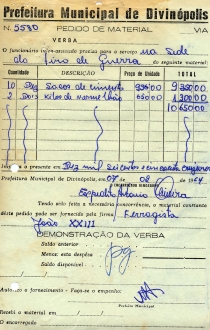 Prefeitura Municipal de Divinópolis
N. 5530 PEDIDO DE MATERIAL VIA
VERBA
O funcionário infra-assinado precisa para o serviço na Sede
do Tiro de Guerra do seguinte material:
Quantidade DESCRIÇÃO Preço de Unidade TOTAL
10 Dez Sacos de cimento 935000 9.350.00
2 Dois kilos de vermelhão 650.00 1.300.00
10.650.00
a presente em Dez mil seiscentos e cincoenta cruzeiros
Prefeitura Municipal de Divinópolis, 07 de 02 de
O ENCARREGADO
Antonio
Tendo sido feita a necessária concorrência, o material constante
dêste pedido pode ser fornecido pela firma Ferragista
João XXIII
DEMONSTRAÇÃO DA VERBA
Saldo anterior
Menos esta despêsa
Saldo disponível
pg
Autorizo o fornecimento - Faça-se o empenho.
Prefeito Municipal
Recebi o material em
O encarregado